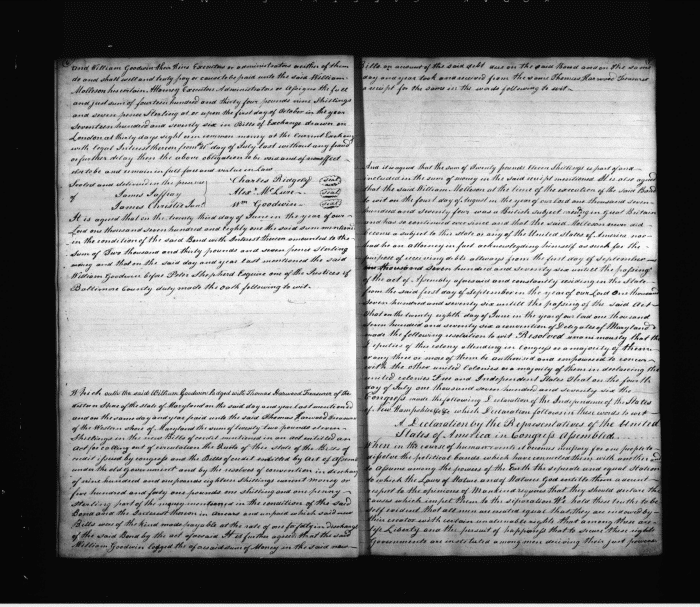 and William Goodwin their Heirs Executors or administrators or either of them
do and shall well and truly pay or cause to be paid unto the said William
Molleson his certain Attorney Executors Administrators or Assigns the full
and just sum of fourteen hundred and thirty four pounds nine Shillings
and seven pence Sterling at or upon the first day of October in the year
seventeen hundred and seventy six in Bills of Exchange drawn on
London at thirty days sight or in common money at the Current Exchange
with legal Interest thereon from day of July last without any fraud
or further delay then the above obligation to be void and of none effect
else to be and remain in full force and value in Law
Sealed and delivered in the presence Charles Ridgely Seal
of James Jaffray Alex. McLure Seal
James Christie Junr. Wm. Goodwin Seal
It is agreed that on the twenty third day of June in the year of our
Lord one thousand seven hundred and eighty one the said sum mentioned
in the condition of the said Bond with Interest thereon amounted to the
Sum of Two thousand and thirty pounds and seven pence sterling
money and that on the said day and year last mentioned the said
William Goodwin before Peter Shepherd Esquire one of the Justices of
Baltimore County duly made the Oath following to wit.
Which oath the said William Goodwin lodged with Thomas Harwood Treasurer of the
Western Shore of the State of Maryland on the said day and year last mentioned
and on the same day and year paid unto the said Thomas Harwood Treasurer
of the Western Shore of Maryland the sum of twenty two pounds eleven
Shillings in the new Bills of credit mentioned in an act entitled an
Act for calling out of circulation the Quota of this State of the Bills of
credit issued by congress and the Bills of credit emitted by Act of Assembly
under the old government and by the resolves of convention in discharge
of nine hundred and one pounds eighteen shillings current money or
five hundred and forty one pounds one shilling and one penny
Sterling part of the money mentioned in the condition of the said
Bond and the Interest thereon in arrears and unpaid which said new
Bills were of the kind made payable at the rate of one for forty in discharge
of the said Bond by the act aforesaid It is further agreed that the said
William Goodwin lodged the aforesaid sum of Money in the said new
Bills on account of the said debt due on the said Bond and on the same
day and year took and received from the same Thomas Harwood Treasurer
a receipt for the same in the words following to wit
And it is agreed that the sum of Twenty pounds Eleven Shillings is part of and
included in the sum of money in the said receipt mentioned It is also agreed
that the said William Molleson at the time of the execution of the said Bond
to wit on the first day of August in the year of our Lord one thousand seven
hundred and seventy four was a British subject residing in Great Britain
and has so continued ever since and that the said Molleson never did
become a subject to this state or any of the United States of America nor
had he an attorney in fact acknowledging himself as such for the
purpose of receiving debts always from the first day of September
one thousand seven hundred and seventy six untill the passing
of the act of Assembly aforesaid and constantly residing in the State
from the said first day of September in the year of our Lord One thousand
seven hundred and seventy six untill the passing of the said Act
that on the twenty eighth day of June in the year of our Lord one thousand
seven hundred and seventy six a convention of Delegates of Maryland
made the following resolution to wit Resolved unanimously that the
Deputies of this colony attending in Congress or a majority of them
or any three or more of them be authorised and empowered to concur
with the other united colonies or a majority of them in declaring the
united colonies Free and Independent States that on the fourth
day of July one thousand seven hundred and seventy six the
Congress made the following Declaration of the Independence of the States
of New Hampshire &c &c which Declaration follows in these words to wit
A Declaration by the Representatives of the United
States of America in Congress Assembled.
When in the course of human events it becomes necessary for one people to
dissolve the political bands which have connected them with another and
to assume among the powers of the Earth the separate and equal Station
to which the Laws of Nature and of Natures God entitle them a decent
respect to the opinions of Mankind requires that they should declare the
causes which impel them to the separation We hold these truths to be
self evident that all men are created equal that they are endowed by
their creator with certain unalienable rights that among these are
life Liberty and the pursuit of happiness that to secure these rights
Governments are instituted among men deriving their just powers